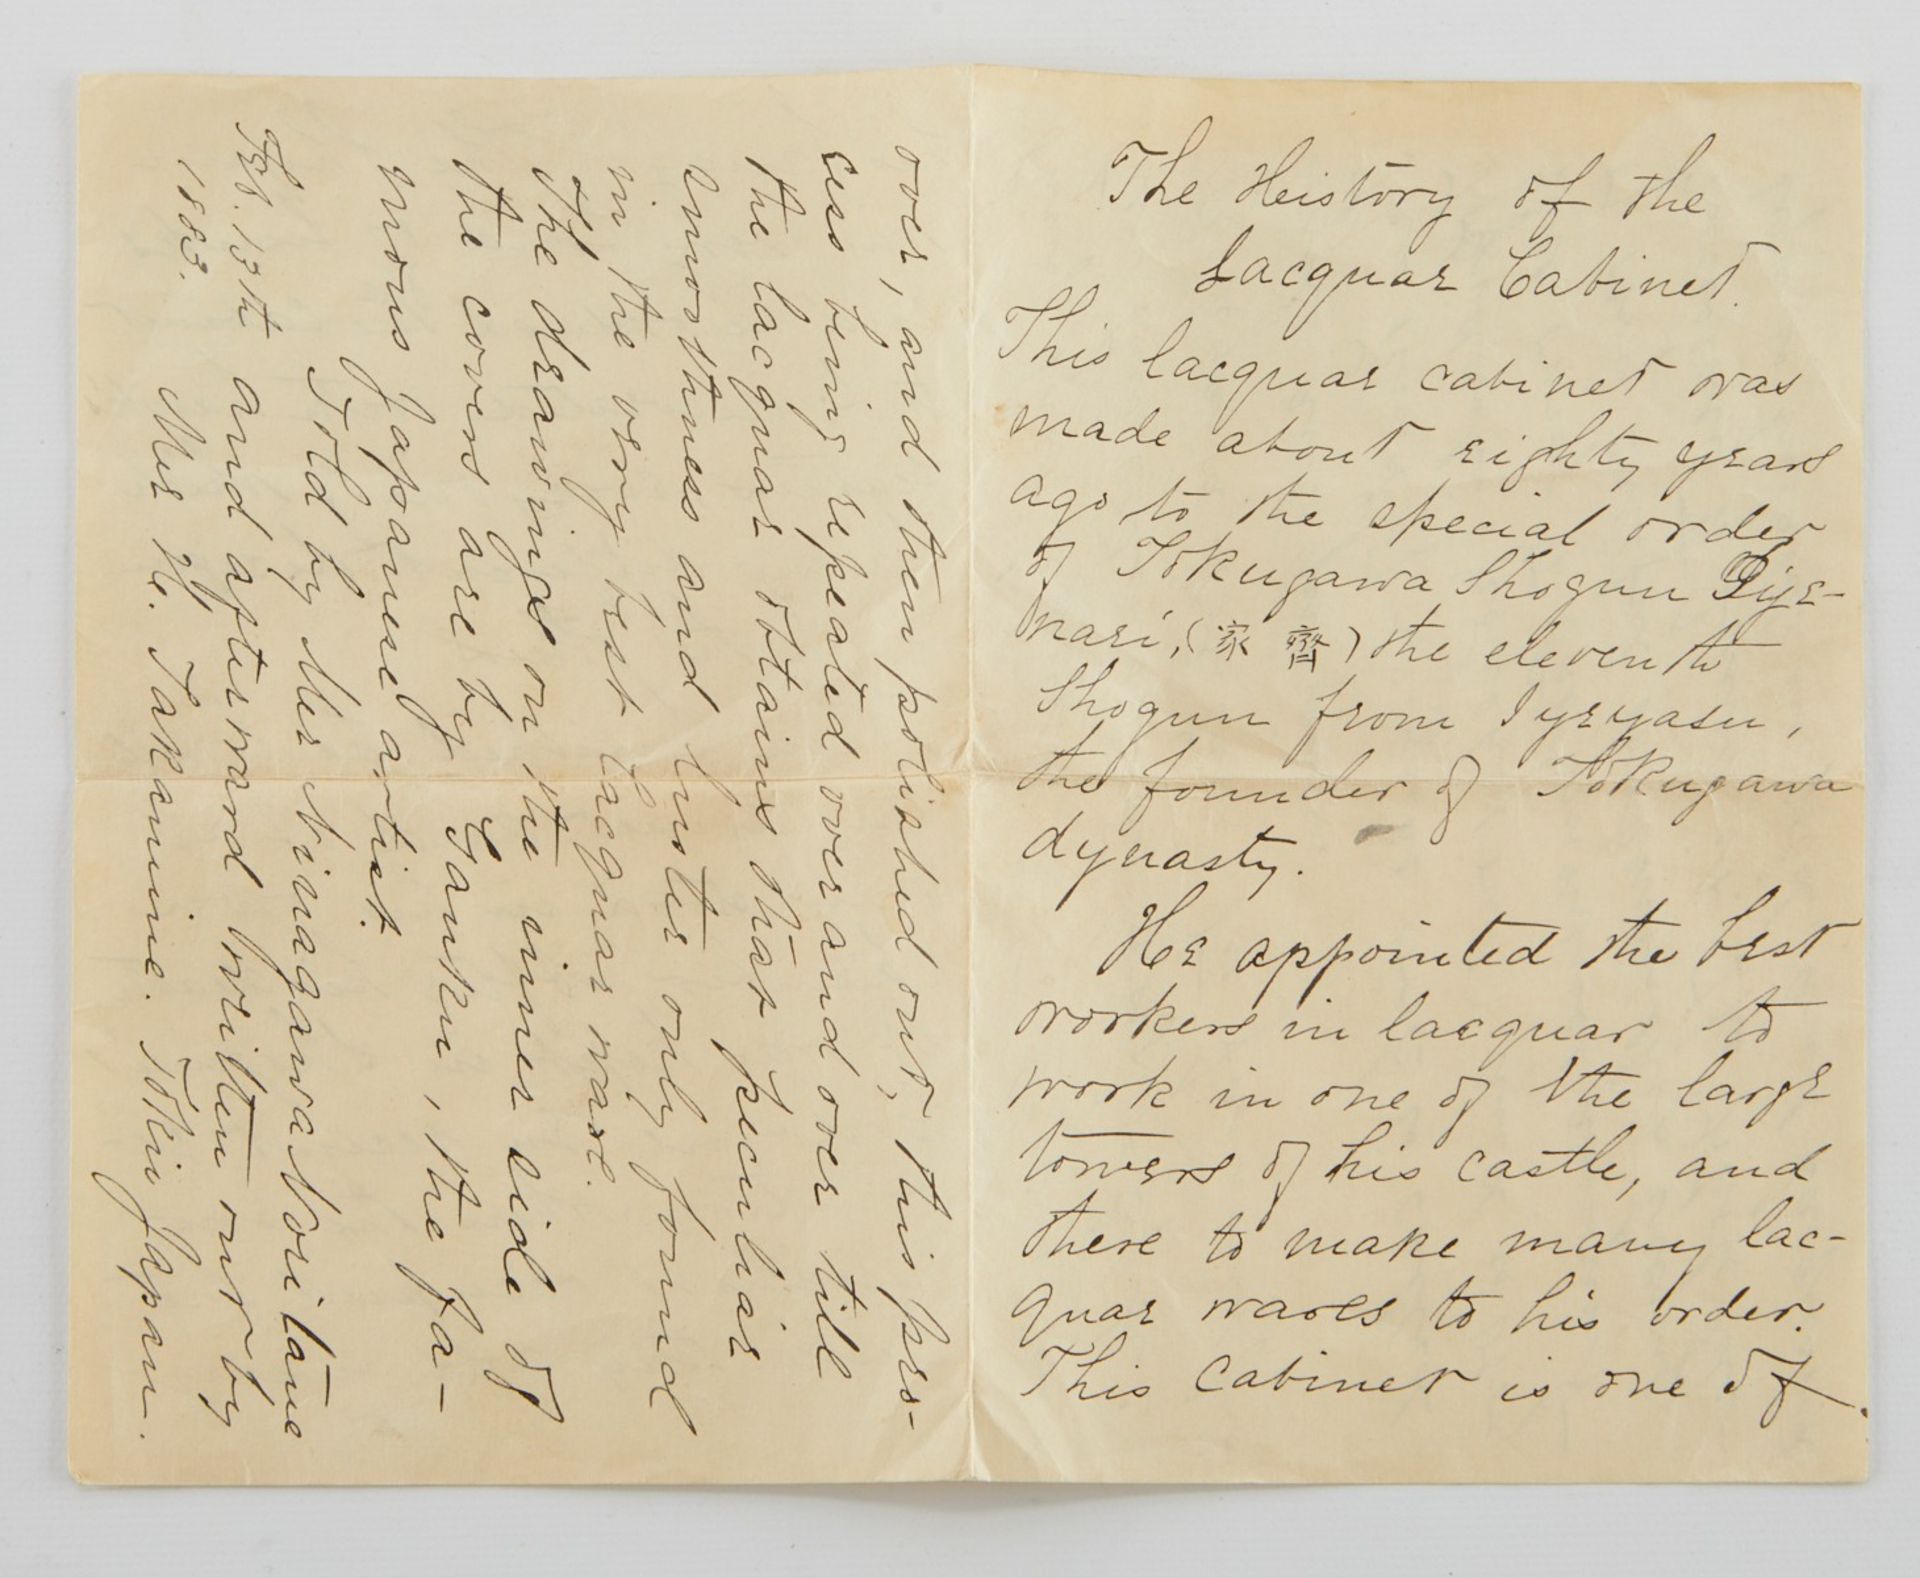 The Heistory of the
Lacquar Cabinet.
This lacquar cabinet was
made about eighty years
ago to the special order
of Tokugawa Shogun Iiye-
nari, (家 齊) the eleventh
Shogun from Iyeyasu,
the founder of Tokugawa
dynasty.
He appointed the best
workers in lacquar to
work in one of the large
towers of his castle, and
there to make many lac-
quar wares to his order.
This cabinet is one of
over, and then polished out, this pro-
cess being repeated over and over till
the lacquar obtains that peculiar
smoothness and luster only found
in the very best lacquar ware.
The drawings on the inner side of
the covers are by Ganku, the fa-
mous Japanese artist.
Told by Mr Ninagawa Noritane
Feb. 13th and afterward written our by
1883. Mr H. Takamine. Tokio Japan.